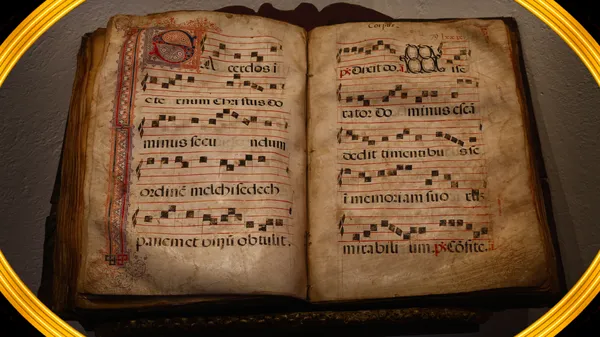 Sacerdos i
ete rnum Christus do
minus secu ndum
ordinē melchisedech
panem et vinū obtulit.
ps Dixit do
rator do minus escā
dedit timentibus se
i memoriam suo
mirabili um. ps Cōfite